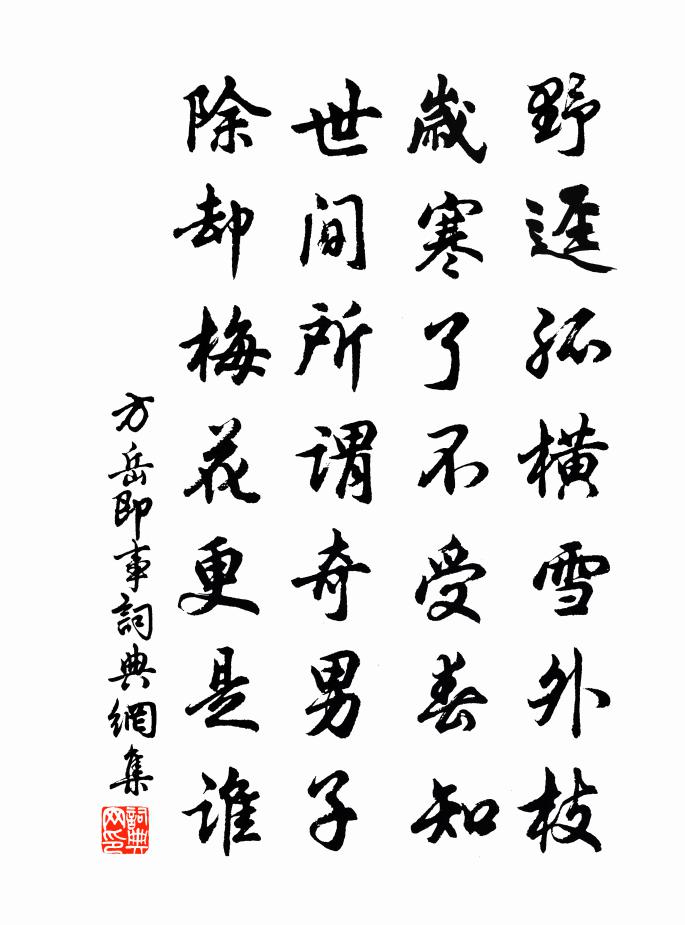 野逕孤橫雪外枝
歲寒了不受春知
世間所謂奇男子
除却梅花更是誰
方岳即事詞典網集
詞典网印